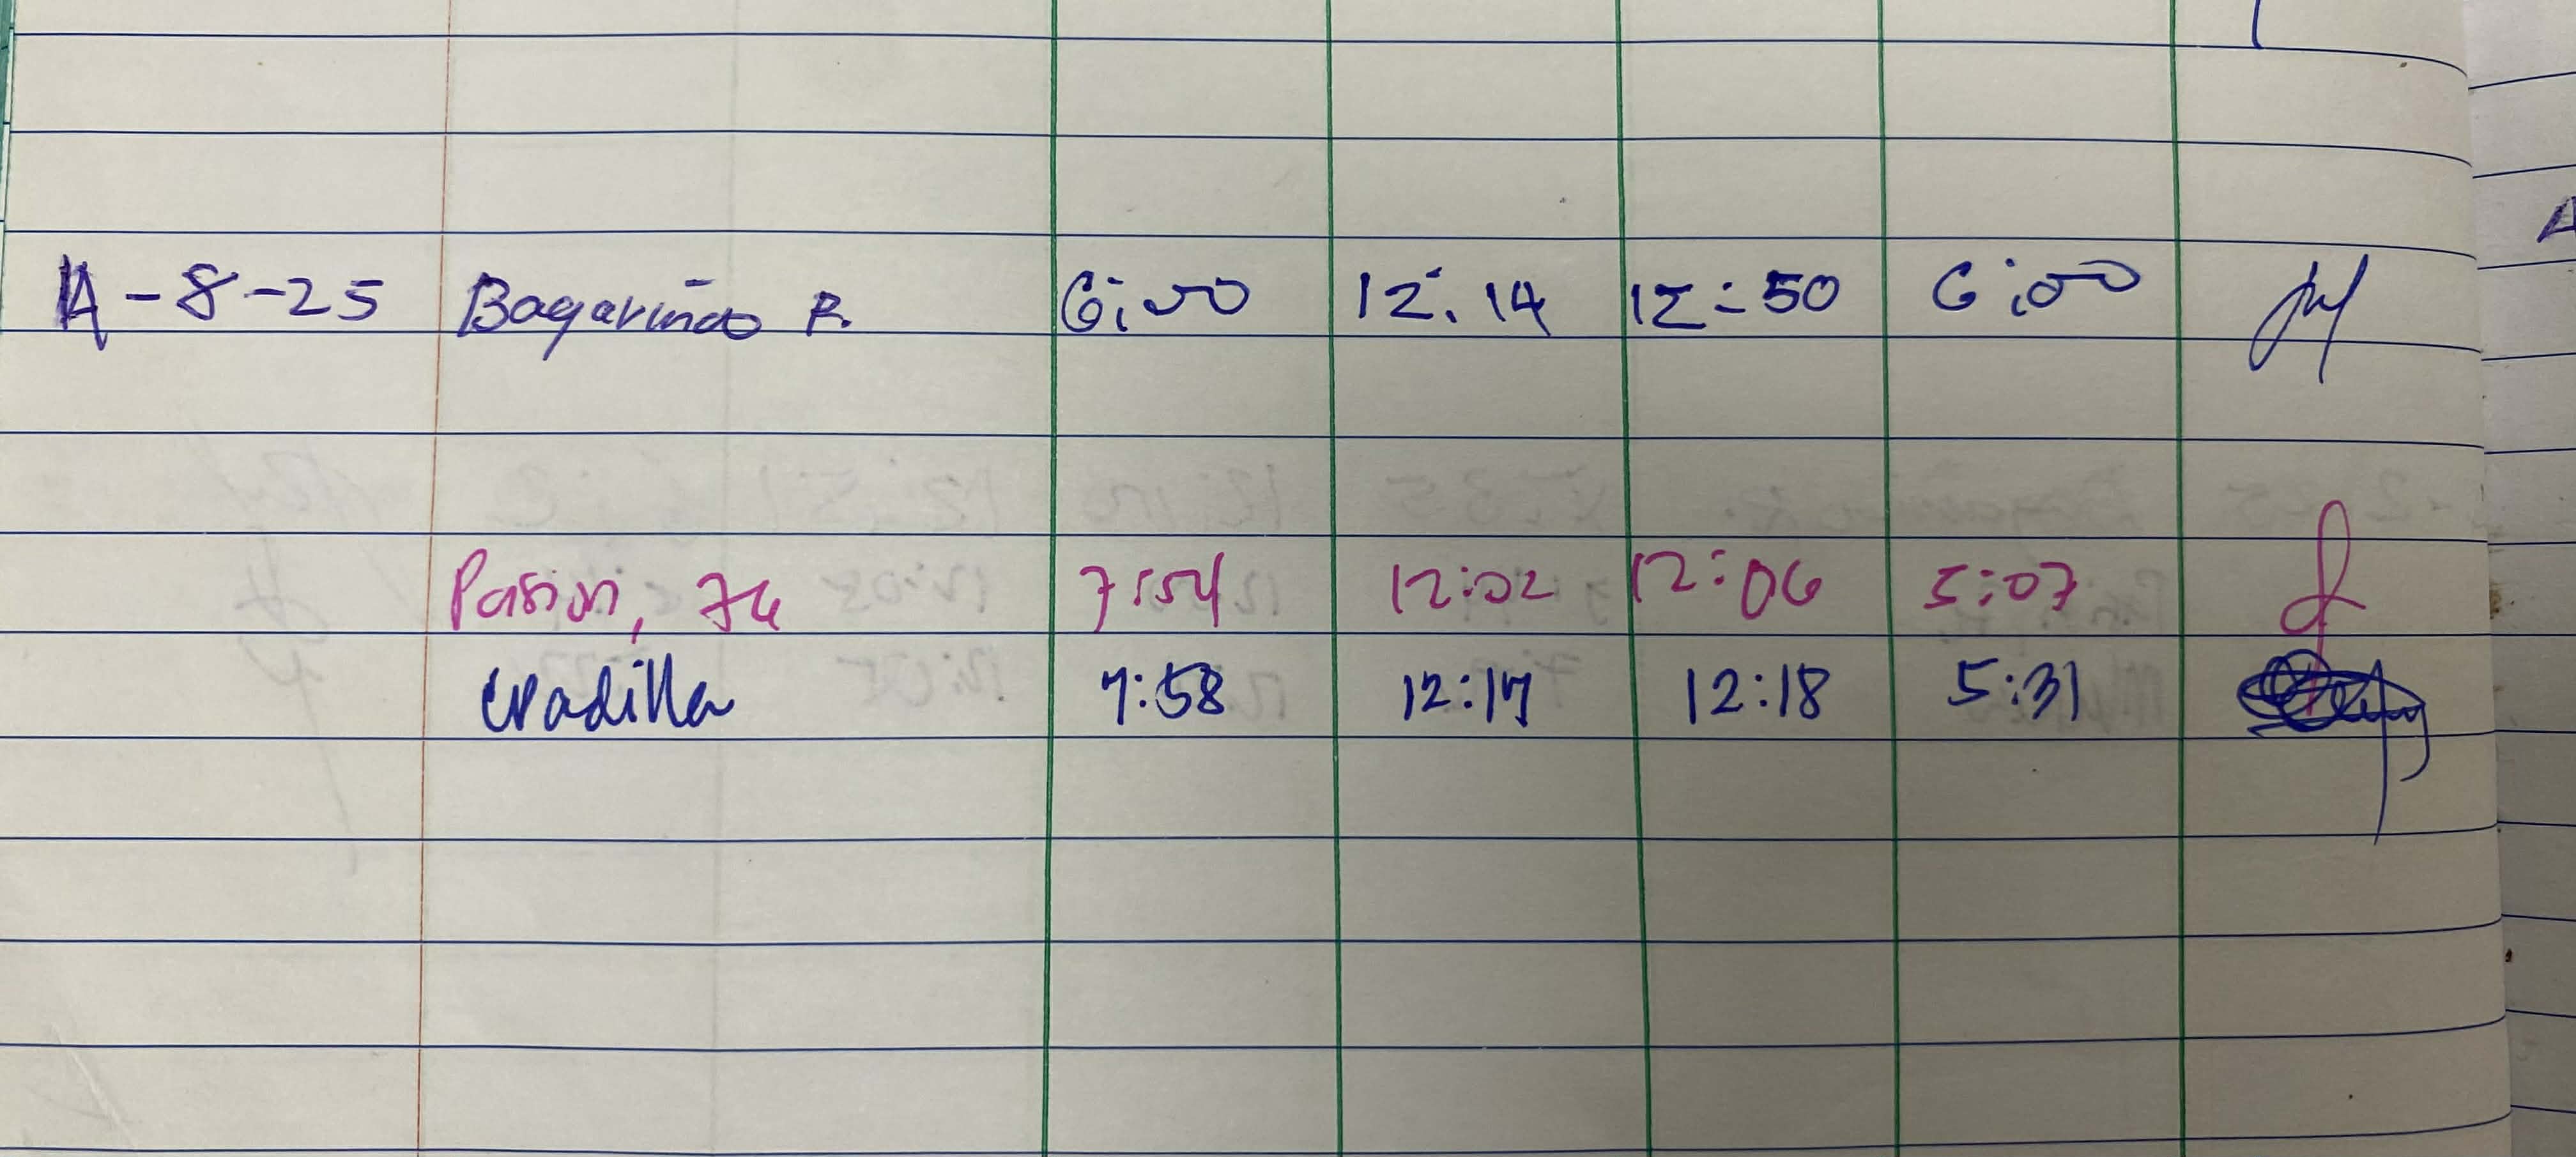 4-8-25 Bagariñao R. 6:00 12:14 12:50 6:00
Pasion, 7:54 12:02 12:06 5:07
7:58 12:17 12:18 5:31